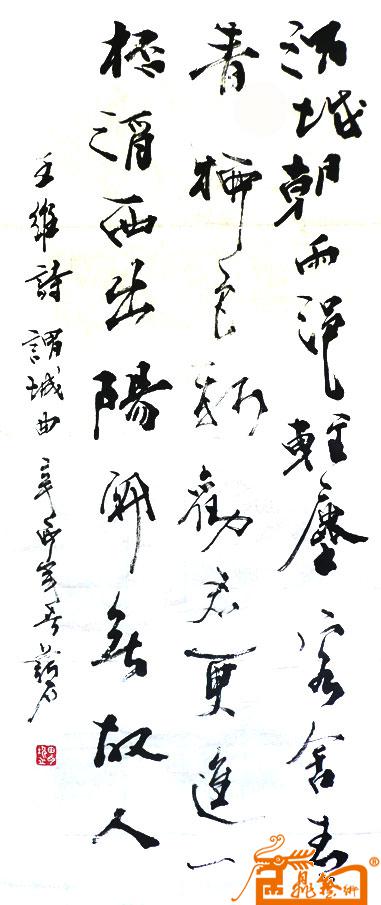 渭城朝雨浥輕塵客舍青
青柳色新勸君更進一
杯酒西出陽關無故人
王維詩 謂城曲 辛酉
鼎藝術